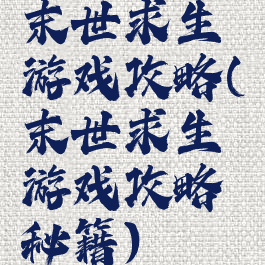 末世求生
游戏攻略(
末世求生
游戏攻略
秘籍)